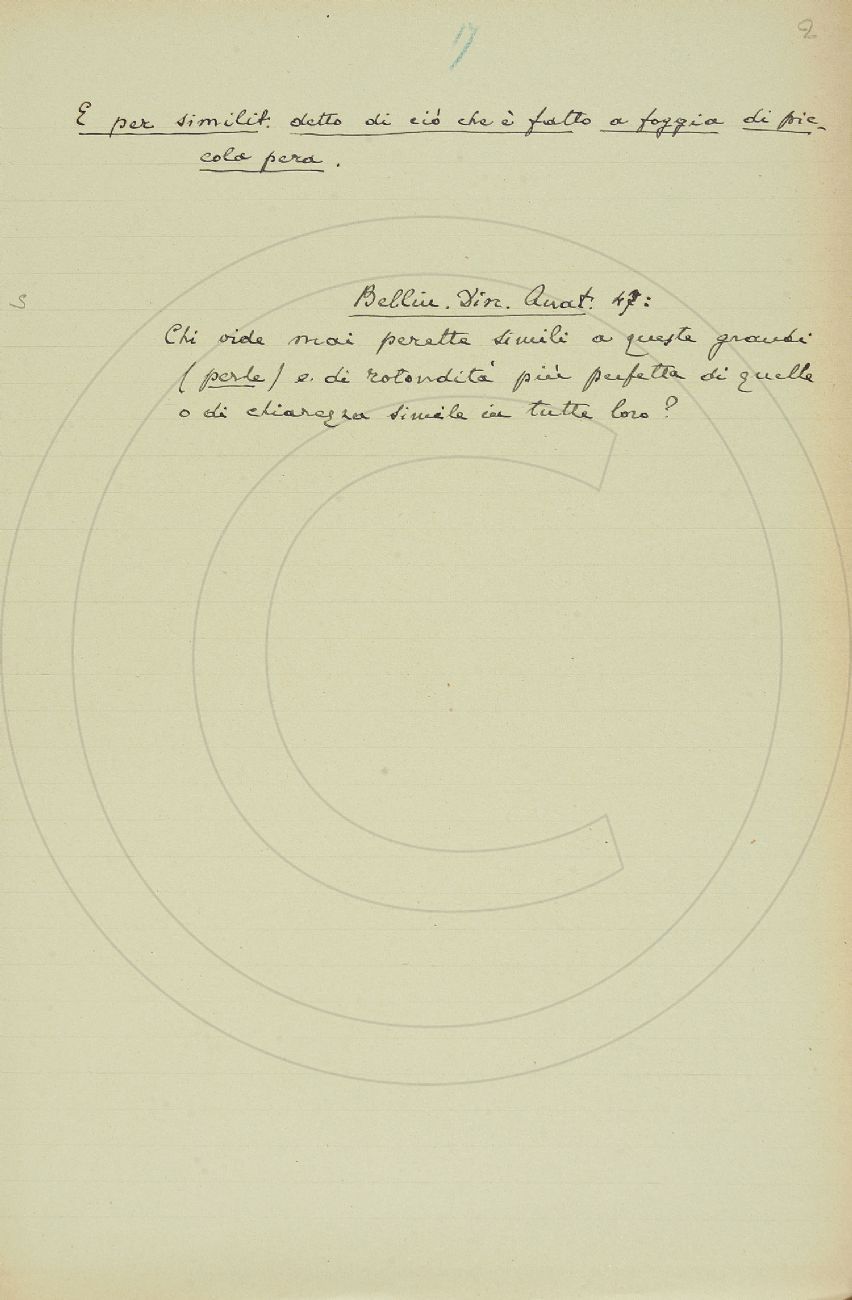 17
2
E per similit. detto di ciò che è fatto a foggia di pic-
cola pera.
S
Bellin. Din. Anat. 47:
Chi vide mai perette simili a queste grandi
(perle) e di rotondità più perfetta di quelle
o di chiarezza simile in tutte loro?